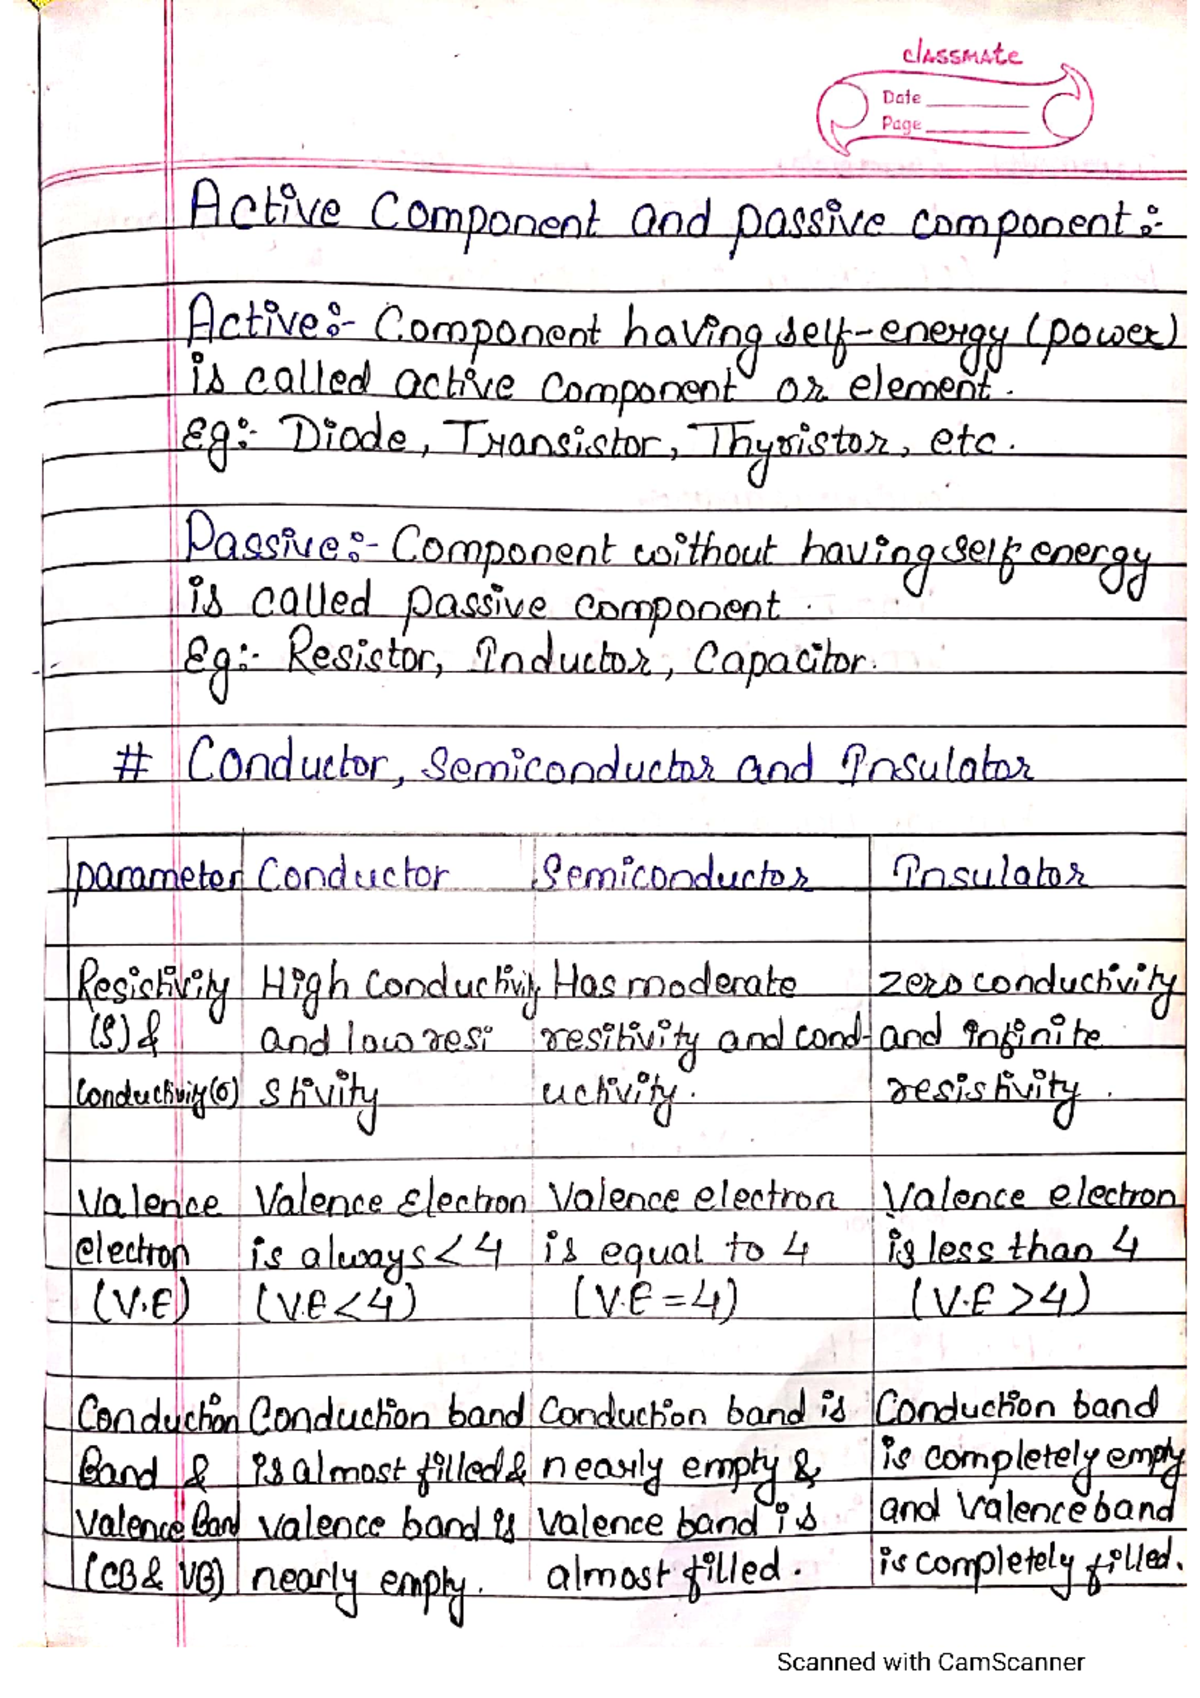 classmate
Date
Page
Active Component and passive component :-
Active :- Component having self-energy (power)
is called active component or element.
Eg :- Diode, Transistor, Thyristor, etc.
Passive :- Component without having self energy
is called passive component.
Eg :- Resistor, Inductor, Capacitor.
# Conductor, Semiconductor and Insulator
parameter Conductor Semiconductor Insulator
Resistivity High Conductivity Has moderate zero conductivity
(ρ) & and low resi resitivity and cond- and infinite
Conductivity(σ) stivity uctivity. resistivity.
Valence Valence Electron Valence electron Valence electron
electron is always < 4 is equal to 4 is less than 4
(V.E) (V.E < 4) (V.E = 4) (V.E > 4)
Conduction Conduction band Conduction band is Conduction band
Band & is almost filled & nearly empty & is completely empty
Valence Band valence band is valence band is and valence band
(CB & VB) nearly empty. almost filled. is completely filled.
Scanned with CamScanner